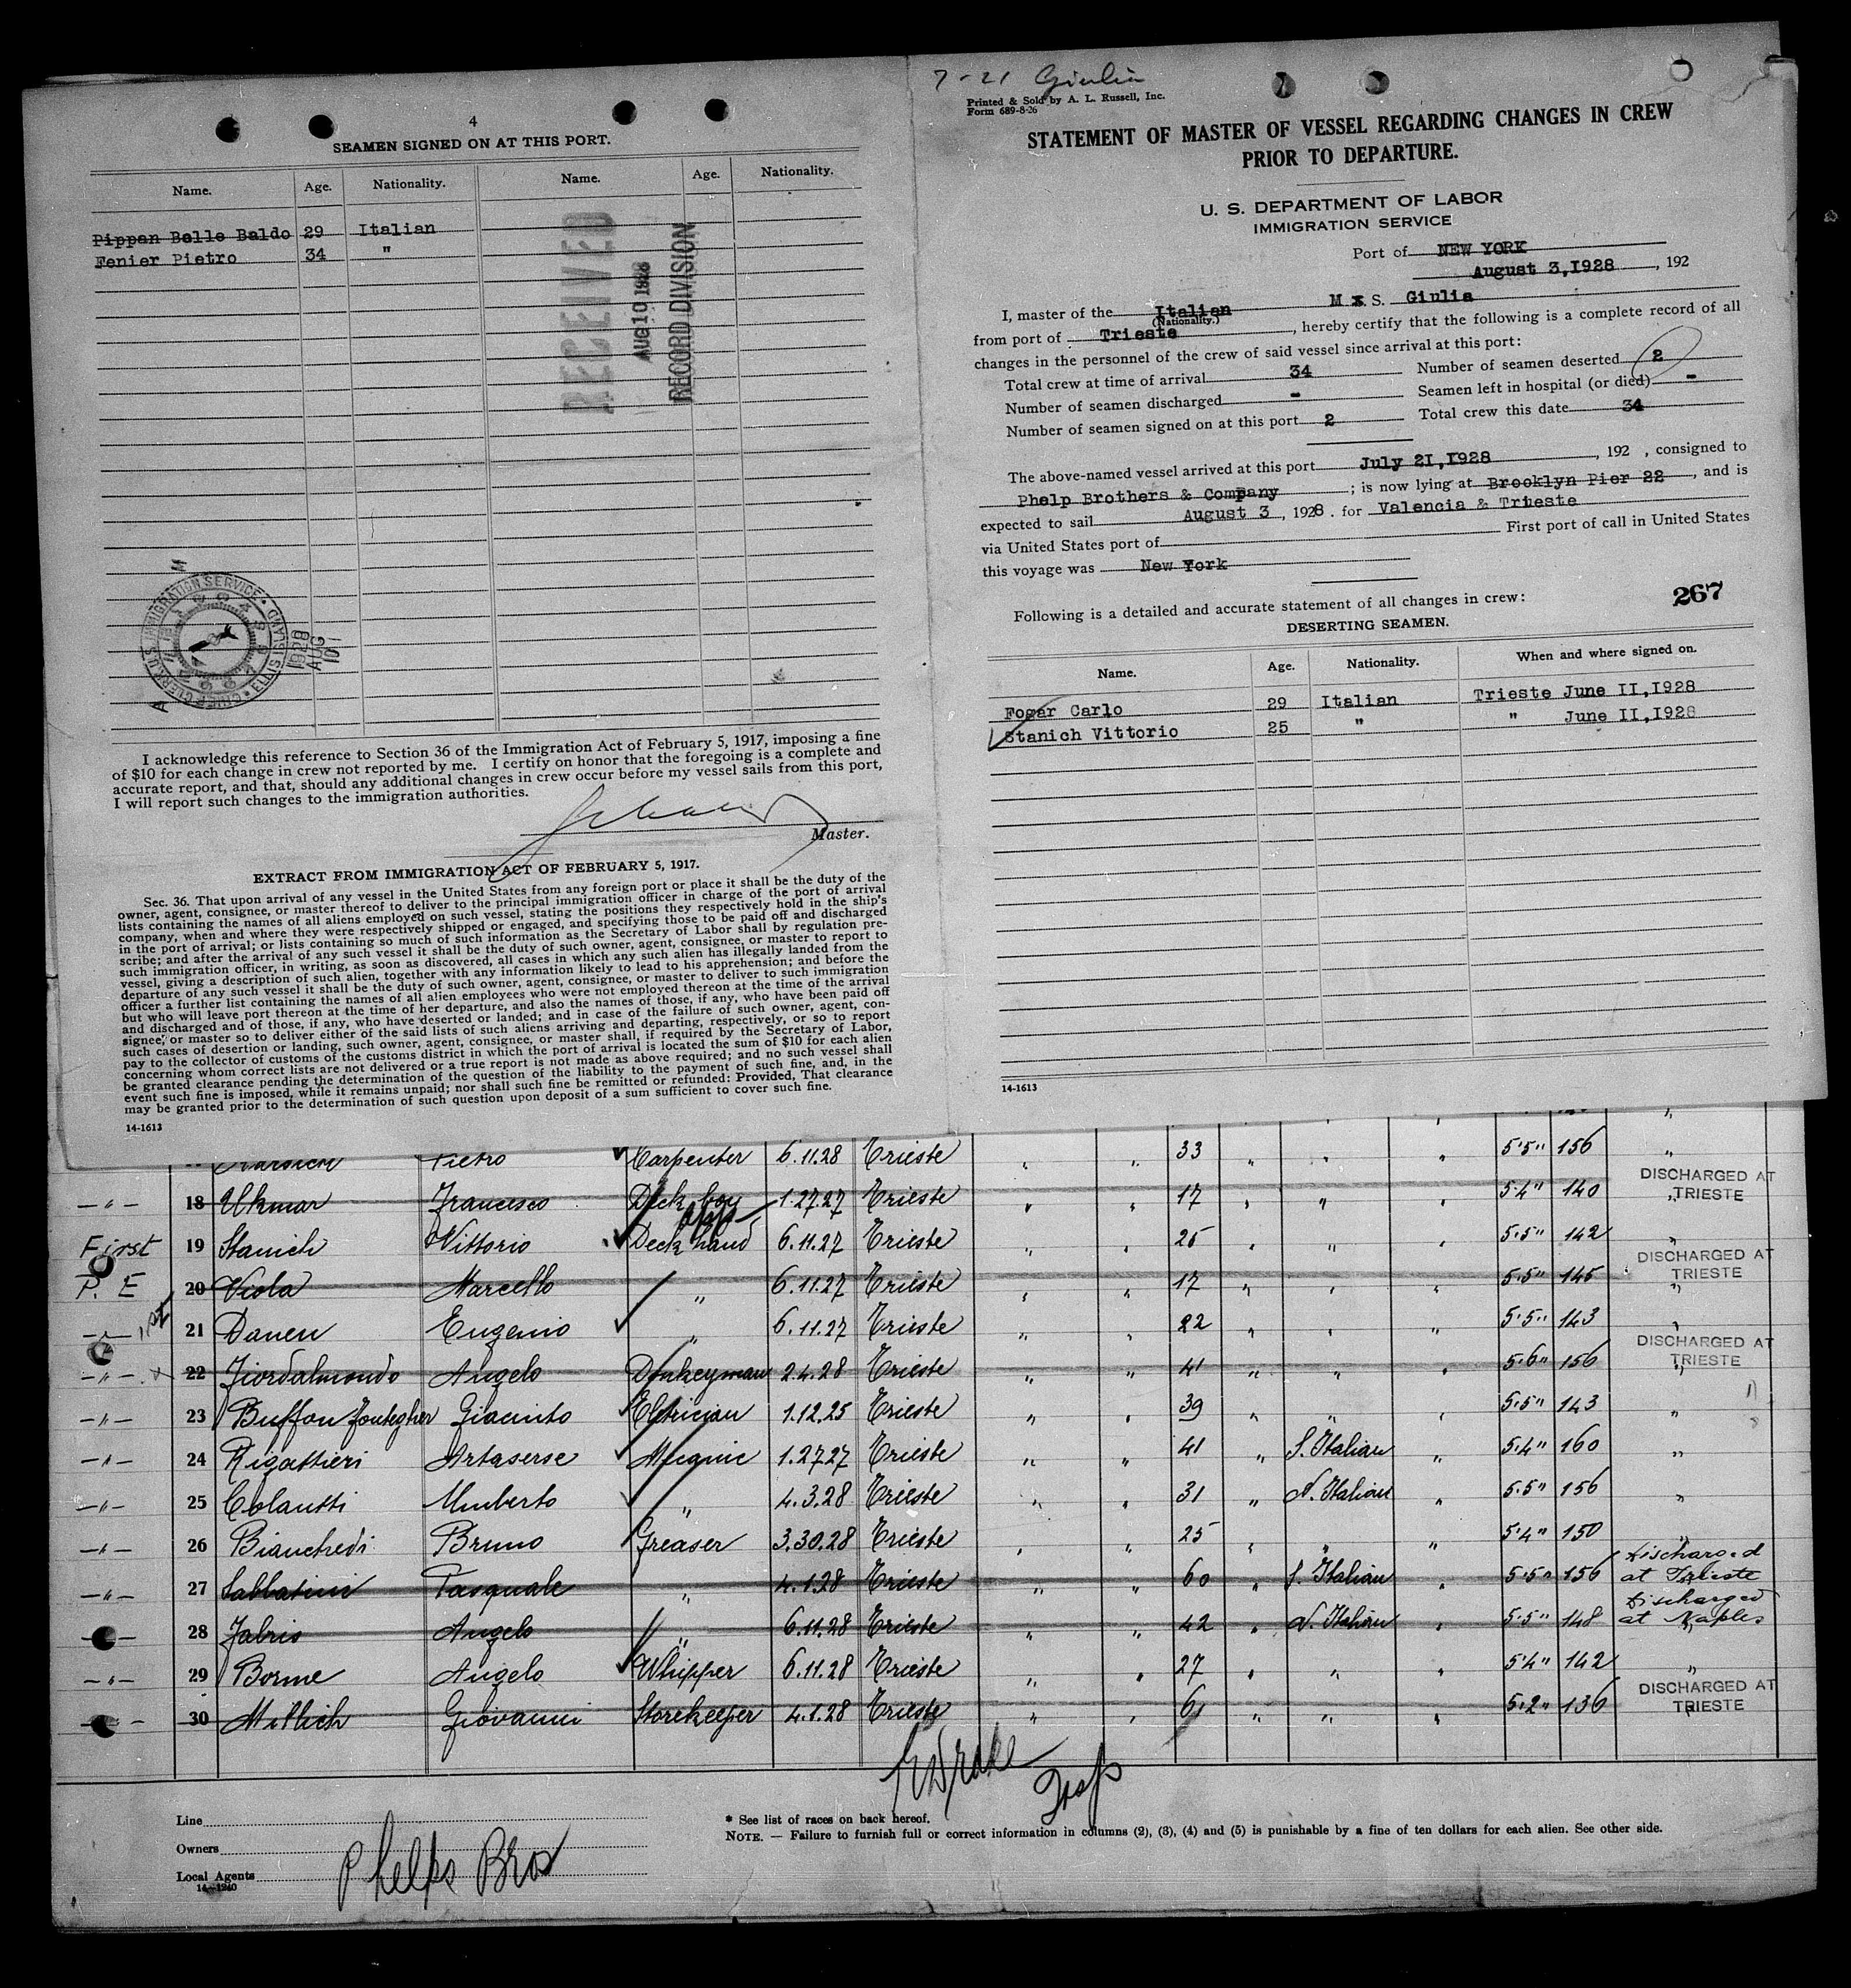 4
SEAMEN SIGNED ON AT THIS PORT.
Name. Age. Nationality. Name. Age. Nationality.
Pippan Belle Baldo 29 Italian
Fenier Pietro 34 "
RECEIVED
AUG 10 1928
RECORD DIVISION
CHIEF CLERK U.S. IMMIGRATION SERVICE • ELLIS ISLAND
1928
AUG
10
I acknowledge this reference to Section 36 of the Immigration Act of February 5, 1917, imposing a fine
of $10 for each change in crew not reported by me. I certify on honor that the foregoing is a complete and
accurate report, and that, should any additional changes in crew occur before my vessel sails from this port,
I will report such changes to the immigration authorities.
Master.
EXTRACT FROM IMMIGRATION ACT OF FEBRUARY 5, 1917.
Sec. 36. That upon arrival of any vessel in the United States from any foreign port or place it shall be the duty of the
owner, agent, consignee, or master thereof to deliver to the principal immigration officer in charge of the port of arrival
lists containing the names of all aliens employed on such vessel, stating the positions they respectively hold in the ship's
company, when and where they were respectively shipped or engaged, and specifying those to be paid off and discharged
in the port of arrival; or lists containing so much of such information as the Secretary of Labor shall by regulation pre-
scribe; and after the arrival of any such vessel it shall be the duty of such owner, agent, consignee, or master to report to
such immigration officer, in writing, as soon as discovered, all cases in which any such alien has illegally landed from the
vessel, giving a description of such alien, together with any information likely to lead to his apprehension; and before the
departure of any such vessel it shall be the duty of such owner, agent, consignee, or master to deliver to such immigration
officer a further list containing the names of all alien employees who were not employed thereon at the time of the arrival
but who will leave port thereon at the time of her departure, and also the names of those, if any, who have been paid off
and discharged and of those, if any, who have deserted or landed; and in case of the failure of such owner, agent, con-
signee, or master so to deliver either of the said lists of such aliens arriving and departing, respectively, or so to report
such cases of desertion or landing, such owner, agent, consignee, or master shall, if required by the Secretary of Labor,
pay to the collector of customs of the customs district in which the port of arrival is located the sum of $10 for each alien
concerning whom correct lists are not delivered or a true report is not made as above required; and no such vessel shall
be granted clearance pending the determination of the question of the liability to the payment of such fine, and, in the
event such fine is imposed, while it remains unpaid; nor shall such fine be remitted or refunded: Provided, That clearance
may be granted prior to the determination of such question upon deposit of a sum sufficient to cover such fine.
14-1613
7-21 Giulia
Printed & Sold by A. L. Russell, Inc.
Form 689-8-26
STATEMENT OF MASTER OF VESSEL REGARDING CHANGES IN CREW
PRIOR TO DEPARTURE.
U. S. DEPARTMENT OF LABOR
IMMIGRATION SERVICE
Port of NEW YORK
August 3,1928, 192
I, master of the Italian M S. Giulia
(Nationality.)
from port of Trieste, hereby certify that the following is a complete record of all
changes in the personnel of the crew of said vessel since arrival at this port:
Total crew at time of arrival 34 Number of seamen deserted 2
Number of seamen discharged - Seamen left in hospital (or died) -
Number of seamen signed on at this port 2 Total crew this date 34
The above-named vessel arrived at this port July 21,1928, 192 , consigned to
Phelp Brothers & Company; is now lying at Brooklyn Pier 22, and is
expected to sail August 3, 1928. for Valencia & Trieste
via United States port of First port of call in United States
this voyage was New York
267
Following is a detailed and accurate statement of all changes in crew:
DESERTING SEAMEN.
Name. Age. Nationality. When and where signed on.
Fogar Carlo 29 Italian Trieste June II,1928
Stanich Vittorio 25 " " June II,1928
14-1613
Pietro Carpenter 6.11.28 Trieste " " 33 " " " 5'5" 156 "
-"- 18 Ukmar Francesco Deck boy 1.27.27 Trieste " " 17 " " " 5'4" 140 " DISCHARGED AT TRIESTE
First 19 Stanich Vittorio Deck hand 6.11.27 Trieste " " 25 " " " 5'5" 142 "
P. E 20 Viola Marcello " 6.11.27 Trieste " " 17 " " " 5'5" 145 " DISCHARGED AT TRIESTE
-"- 21 Daneu Eugenio " 6.11.27 Trieste " " 22 " " " 5'5" 143 "
-"- 22 Fiordalmondo Angelo Donkeyman 2.4.28 Trieste " " 41 " " " 5'6" 156 " DISCHARGED AT TRIESTE
-"- 23 Buffon Fontegher Giacinto Eletrician 1.12.25 Trieste " " 39 " " " 5'5" 143 "
-"- 24 Rigattieri Artaserse Mecanic 1.27.27 Trieste " " 41 " S. Italian " 5'4" 160 "
-"- 25 Colautti Umberto " 4.3.28 Trieste " " 31 " N. Italian " 5'5" 156 "
-"- 26 Bianchedi Bruno Greaser 3.30.28 Trieste " " 25 " " " 5'4" 150 "
-"- 27 Sabbatini Pasquale " 4.1.28 Trieste " " 60 " S. Italian " 5'5" 156 Discharged at Trieste
-"- 28 Fabris Angelo " 6.11.28 Trieste " " 42 " N. Italian " 5'5" 148 Discharged at Naples
-"- 29 Borme Angelo Whipper 6.11.28 Trieste " " 27 " " " 5'4" 142 "
-"- 30 Millich Giovanni Storekeeper 4.1.28 Trieste " " 61 " " " 5'2" 136 DISCHARGED AT TRIESTE
Line
Owners
Local Agents Phelps Bros
14-1240
* See list of races on back hereof.
NOTE. — Failure to furnish full or correct information in columns (2), (3), (4) and (5) is punishable by a fine of ten dollars for each alien. See other side.